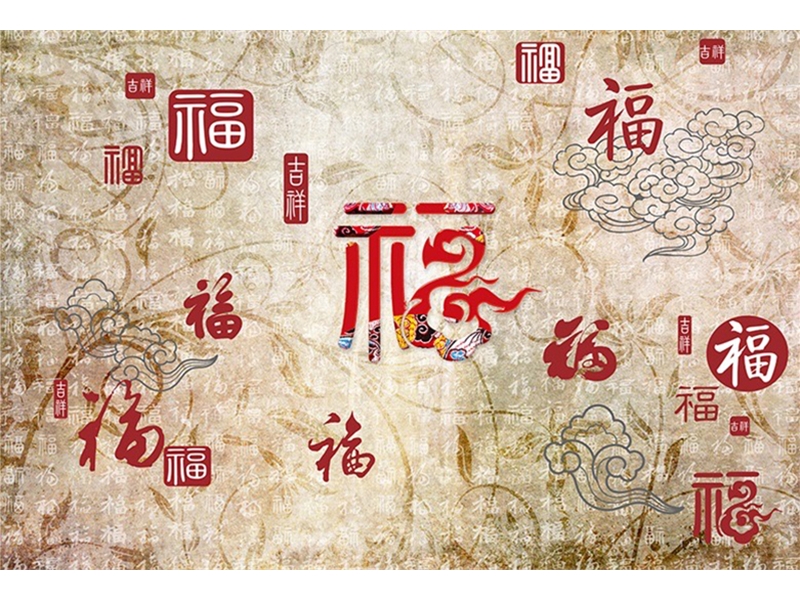 福
吉祥
吉祥
福
福
福
吉祥
福
福
福
吉祥
福
福
吉祥
福
福
吉祥
福
福
福